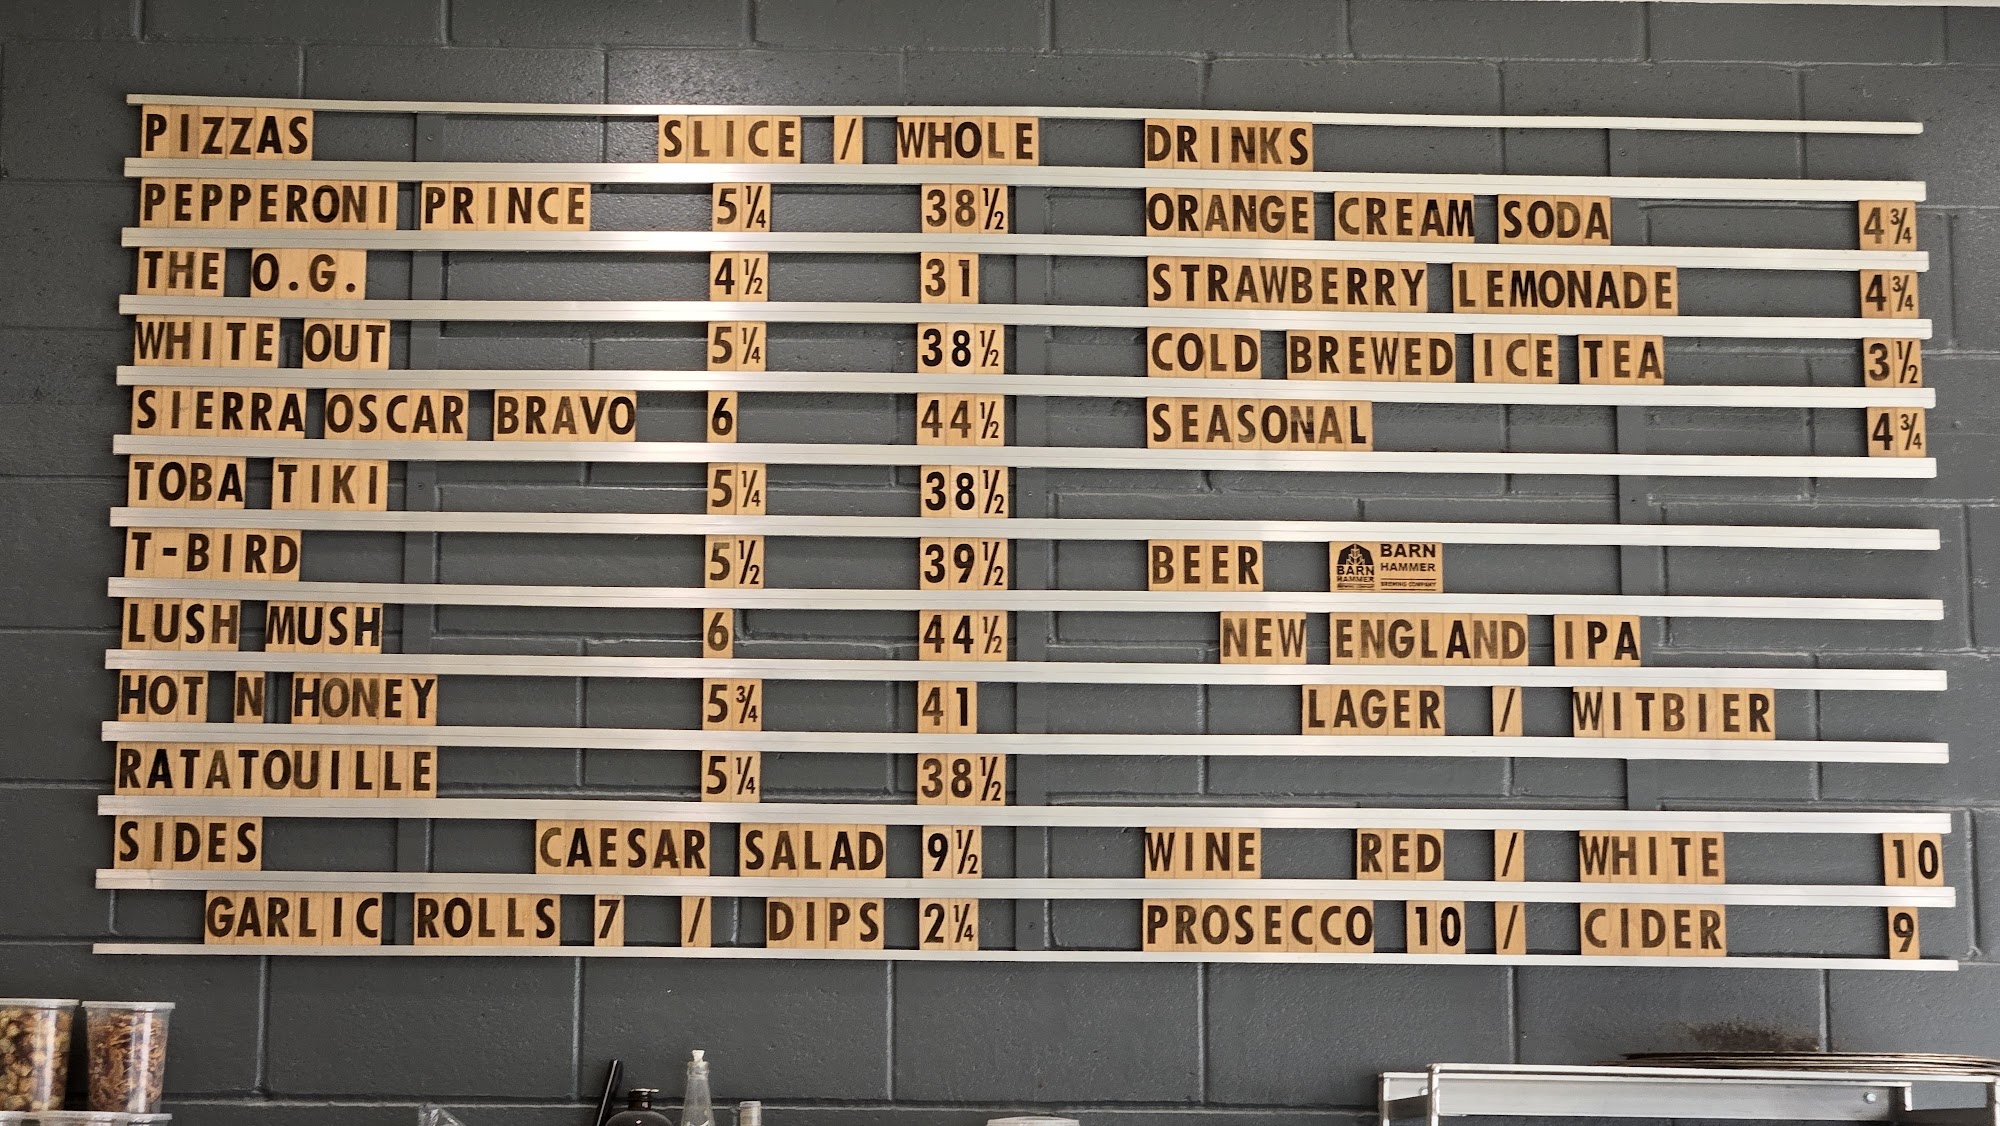 PIZZAS SLICE / WHOLE
PEPPERONI PRINCE 5¼ 38½
THE O.G. 4½ 31
WHITE OUT 5¼ 38½
SIERRA OSCAR BRAVO 6 44½
TOBA TIKI 5¼ 38½
T-BIRD 5½ 39½
LUSH MUSH 6 44½
HOT N HONEY 5¾ 41
RATATOUILLE 5¼ 38½
SIDES CAESAR SALAD 9½
GARLIC ROLLS 7 / DIPS 2¼
DRINKS
ORANGE CREAM SODA 4¾
STRAWBERRY LEMONADE 4¾
COLD BREWED ICE TEA 3½
SEASONAL 4¾
BEER
BARN
HAMMER
BREWING COMPANY
BARN
HAMMER
BREWING COMPANY
NEW ENGLAND IPA
LAGER / WITBIER
WINE RED / WHITE 10
PROSECCO 10 / CIDER 9